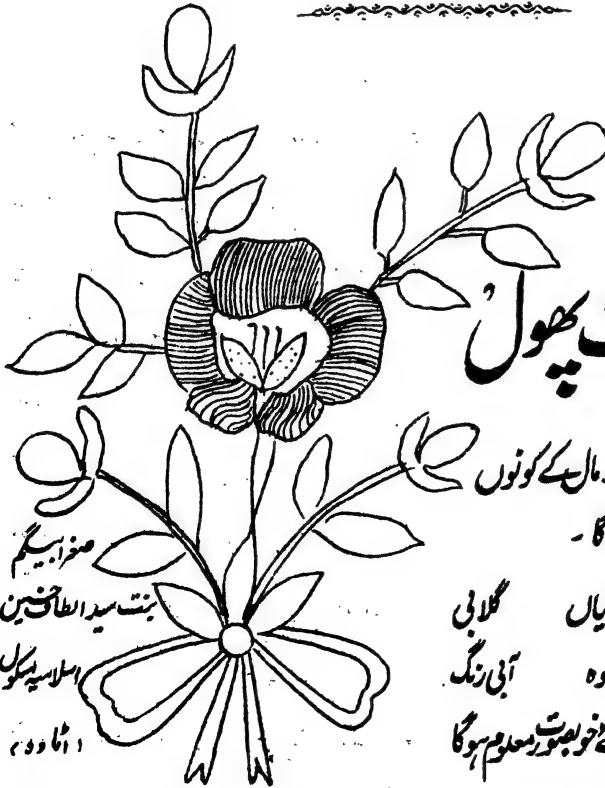 پھول
مال کے کونوں
گا۔
یاں گلابی
وہ آبی رنگ
خوبصورت معلوم ہوگا
صغرا بیگم
بنت سید الطاف حسین
اسلامیہ سکول
(اٹاوہ)